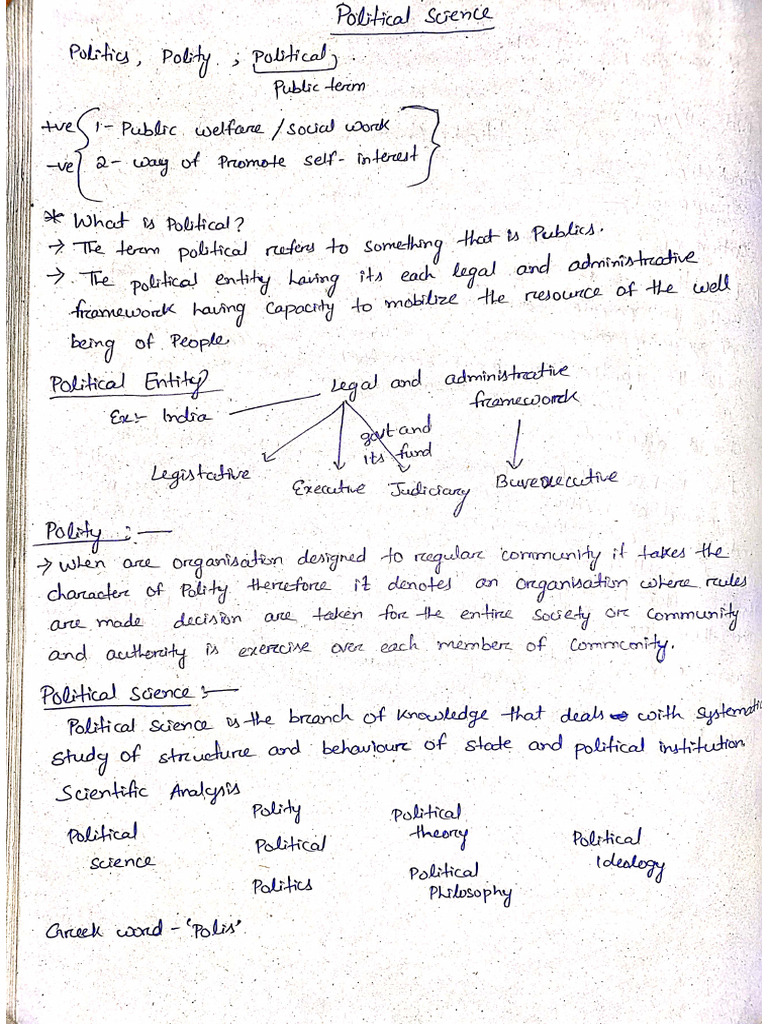 Political Science
Politics, Polity ; Political,
Public term
+ve 1- Public welfare / social work
-ve 2- way of Promote self-interest
* What is Political?
→ The term political refers to something that is Publics.
→ The political entity having its each legal and administrative
framework having capacity to mobilize the resource of the well
being of People
Political Entity?
Legal and administrative
framework
Ex:- India
govt and
its fund
Legistative
Executive Judiciary
Polity :—
→ when are organisation designed to regular community it takes the
character of Polity therefore it denotes an organisation where rules
are made decision are taken for the entire society or community
and authority is exercise over each member of community.
Political Science :—
Political science is the branch of knowledge that deals with systematic
study of structure and behaviour of state and political institution
Scientific Analysis
Political
Science
Polity
Political
Politics
Political
theory
Political
Philosophy
Political
Idealogy
Greek word - 'Polis'